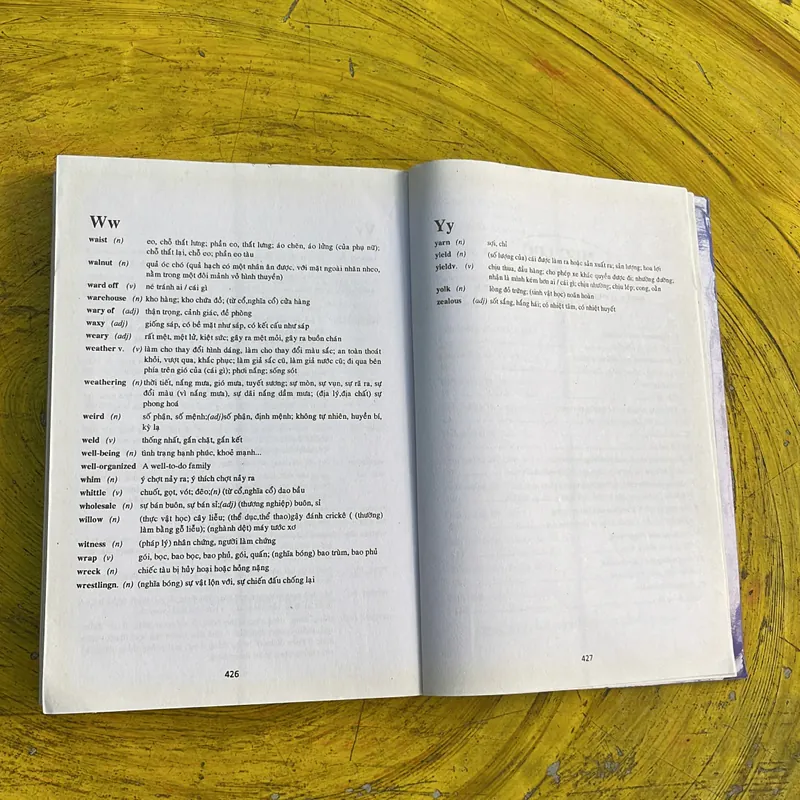 Ww
waist (n) eo, chỗ thắt lưng; phần eo, thắt lưng; áo chẽn, áo lửng (của phụ nữ);
chỗ thắt lại, chỗ eo; phần eo tàu
walnut (n) quả óc chó (quả hạch có một nhân ăn được, với mặt ngoài nhăn nheo,
nằm trong một đôi mảnh vỏ hình thuyền)
ward off (v) né tránh ai / cái gì
warehouse (n) kho hàng; kho chứa đồ; (từ cổ,nghĩa cổ) cửa hàng
wary of (adj) thận trọng, cảnh giác, đề phòng
waxy (adj) giống sáp, có bề mặt như sáp, có kết cấu như sáp
weary (adj) rất mệt, mệt lử, kiệt sức; gây ra mệt mỏi, gây ra buồn chán
weather v. (v) làm cho thay đổi hình dáng, làm cho thay đổi màu sắc; an toàn thoát
khỏi, vượt qua, khắc phục; làm giả sắc cũ, làm giả nước cũ; đi qua bên
phía trên gió của (cái gì); phơi nắng; sống sót
weathering (n) thời tiết, nắng mưa, gió mưa, tuyết sương; sự mòn, sự vụn, sự rã ra, sự
đổi màu (vì nắng mưa), sự dãi nắng dầm mưa; (địa lý,địa chất) sự
phong hoá
weird (n) số phận, số mệnh;(adj)số phận, định mệnh; không tự nhiên, huyền bí,
kỳ lạ
weld (v) thống nhất, gắn chặt, gắn kết
well-being (n) tình trạng hạnh phúc, khoẻ mạnh...
well-organized A well-to-do family
whim (n) ý chợt nảy ra; ý thích chợt nảy ra
whittle (v) chuốt, gọt, vót; đẽo;(n) (từ cổ,nghĩa cổ) dao bầu
wholesale (n) sự bán buôn, sự bán sỉ;(adj) (thương nghiệp) buôn, sỉ
willow (n) (thực vật học) cây liễu; (thể dục,thể thao)gậy đánh crickê ( (thường)
làm bằng gỗ liễu); (nghành dệt) máy tước xơ
witness (n) (pháp lý) nhân chứng, người làm chứng
wrap (v) gói, bọc, bao bọc, bao phủ, gói, quấn; (nghĩa bóng) bao trùm, bao phủ
wreck (n) chiếc tàu bị hủy hoại hoặc hỏng nặng
wrestlingn. (n) (nghĩa bóng) sự vật lộn với, sự chiến đấu chống lại
426
Yy
yarn (n) sợi, chỉ
yield (n) (số lượng của) cái được làm ra hoặc sản xuất ra; sản lượng; hoa lợi
yieldv. (v) chịu thua, đầu hàng; cho phép xe khác quyền được đi; nhường đường;
nhận là mình kém hơn ai / cái gì; chịu nhường; chịu lép; cong, oằn
yolk (n) lòng đỏ trứng; (sinh vật học) noãn hoàn
zealous (adj) sốt sắng, hăng hái; có nhiệt tâm, có nhiệt huyết
427